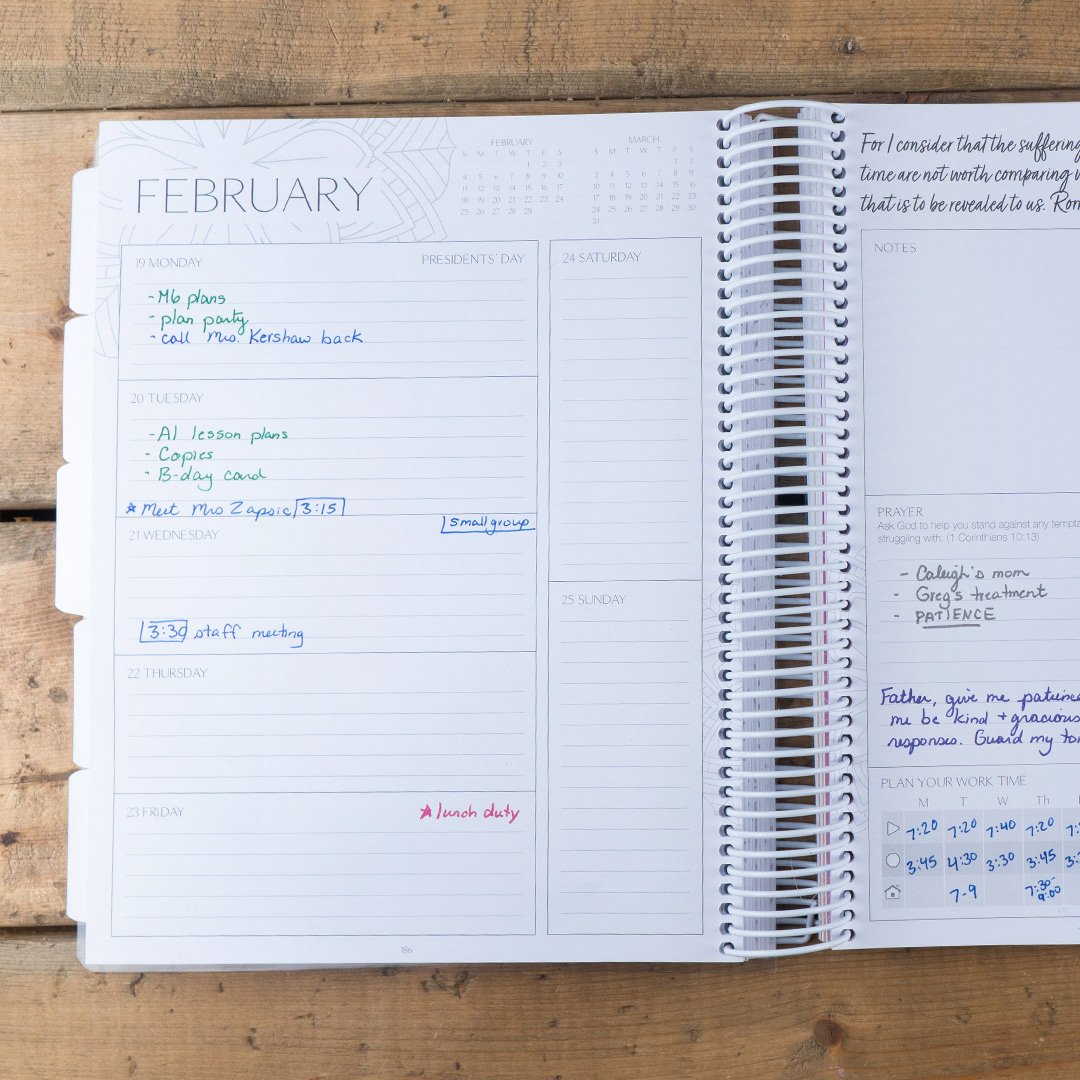 FEBRUARY
FEBRUARY
S M T W T F S
1 2 3
4 5 6 7 8 9 10
11 12 13 14 15 16 17
18 19 20 21 22 23 24
25 26 27 28 29
MARCH
S M T W T F S
1 2
3 4 5 6 7 8 9
10 11 12 13 14 15 16
17 18 19 20 21 22 23
24 25 26 27 28 29 30
31
19 MONDAY PRESIDENTS' DAY
- M6 plans
- plan party
- call Mrs. Kershaw back
20 TUESDAY
- A1 lesson plans
- Copies
- B-day card
★ Meet Mrs Zapsic 3:15
21 WEDNESDAY small group
3:30 staff meeting
22 THURSDAY
23 FRIDAY ★ lunch duty
24 SATURDAY
25 SUNDAY
186
For I consider that the suffering
time are not worth comparing
that is to be revealed to us.
NOTES
PRAYER
Ask God to help you stand against any
struggling with. (1 Corinthians 10:13)
- Caleigh's mom
- Greg's treatment
- PATIENCE
Father, give me
me be kind + gracious
responses. Guard my
PLAN YOUR WORK TIME
M T W Th
7:20 7:20 7:40 7:20
3:45 4:30 3:30 3:45
7-9 7:30-
9:00